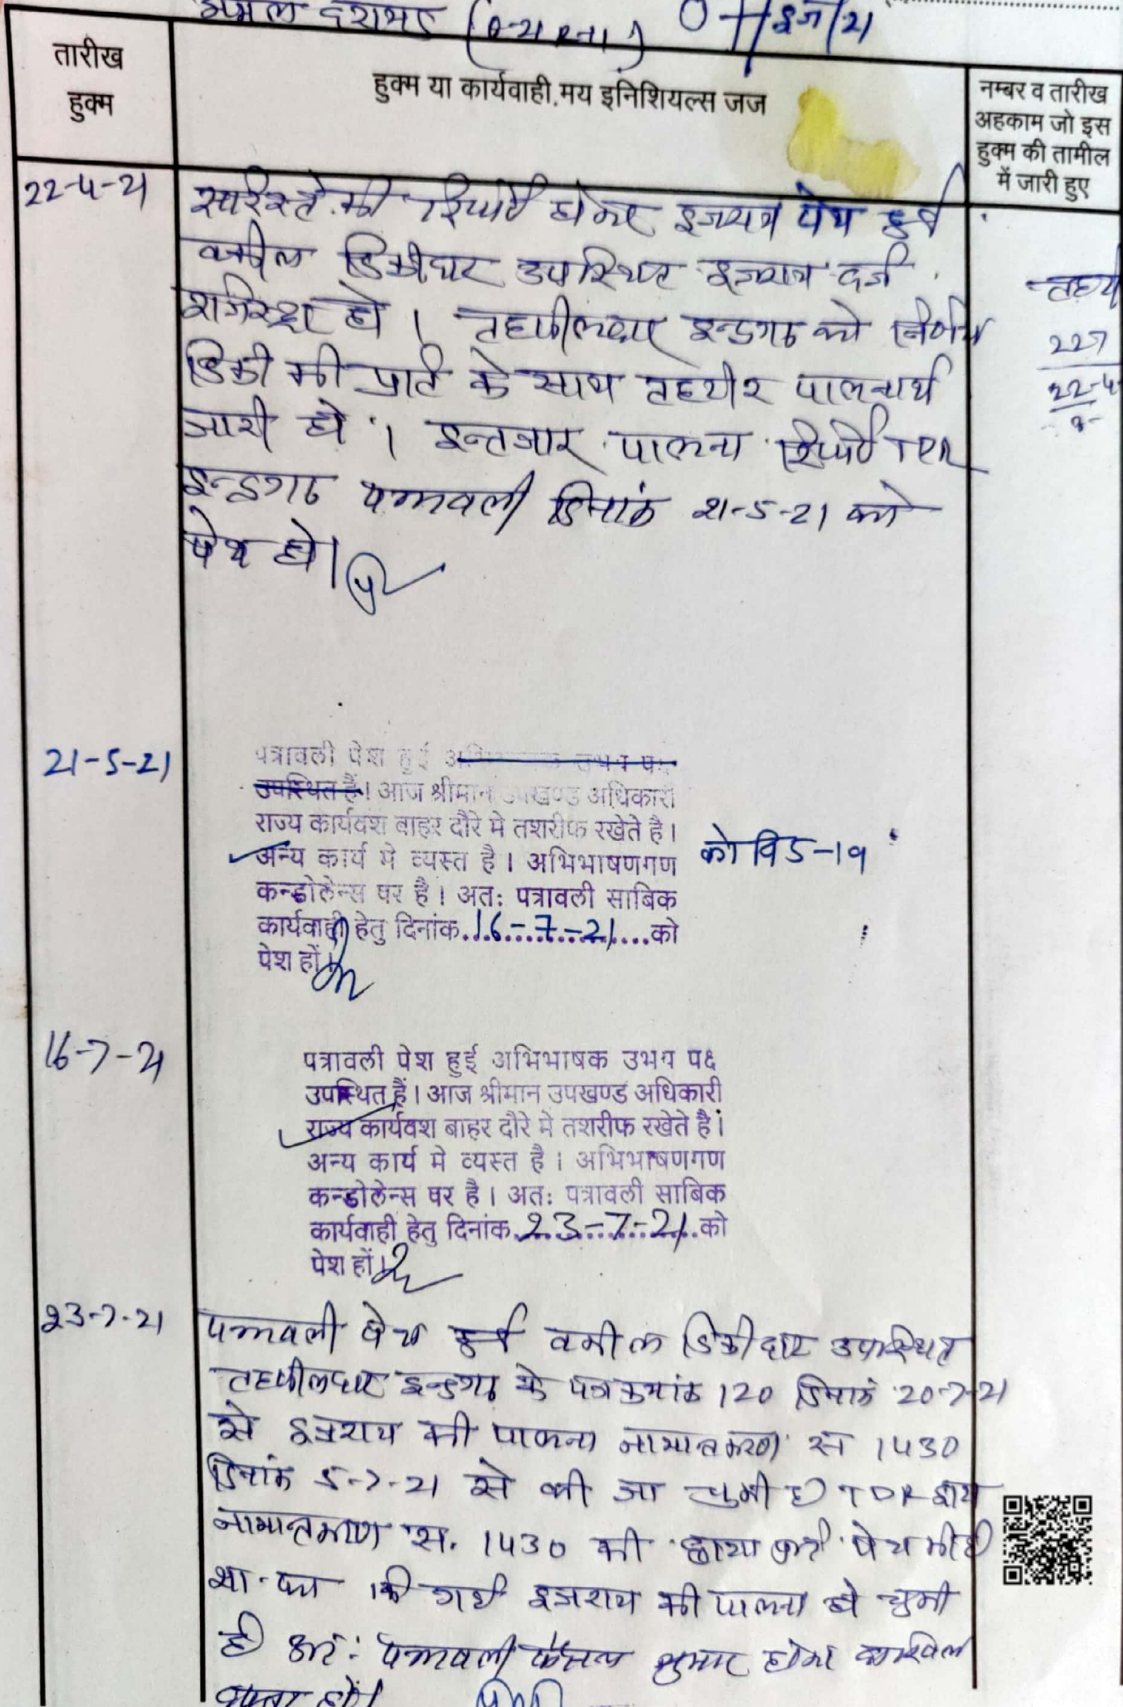 07/इज/21
तारीख
हुक्म
हुक्म या कार्यवाही.मय इनिशियल्स जज
नम्बर व तारीख
अहकाम जो इस
हुक्म की तामील
में जारी हुए
22-4-21
की रिपोर्ट होकर इजराय पेश हुई
वकील डिक्रीदार उपस्थित इजराय दर्ज
रजिस्टर हो । तहसीलदार इन्द्रगढ को निर्णय
डिक्री की प्रति के साथ तहरीर पालनार्थ
जारी हो । इन्तजार पालना रिपोर्ट TDR
इन्द्रगढ पत्रावली दिनांक 21-5-21 को
पेश हो।
227
22-4
21-5-21
पत्रावली पेश हुई
उपस्थित हैं। आज श्रीमान उपखण्ड अधिकारी
राज्य कार्यवश बाहर दौरे मे तशरीफ रखेते है।
अन्य कार्य मे व्यस्त है। अभिभाषणगण
कोविड-19
कन्डोलेन्स पर है। अतः पत्रावली साबिक
कार्यवाही हेतु दिनांक 16-7-21 को
पेश हों।
16-7-21
पत्रावली पेश हुई अभिभाषक उभय पक्ष
उपस्थित हैं। आज श्रीमान उपखण्ड अधिकारी
राज्य कार्यवश बाहर दौरे मे तशरीफ रखेते है।
अन्य कार्य मे व्यस्त है। अभिभाषणगण
कन्डोलेन्स पर है। अतः पत्रावली साबिक
कार्यवाही हेतु दिनांक 23-7-21 को
पेश हों।
23-7-21
पत्रावली पेश हुई वकील डिक्रीदार उपस्थित
तहसीलदार इन्द्रगढ के पत्र क्रमांक 120 दिनांक 20-7-21
से इजराय की पालना नामान्तकरण सं 1430
दिनांक 5-7-21 से की जा चुकी है TDR द्वारा
नामान्तकरण सं. 1430 की छाया प्रति पेश की है
की गई इजराय की पालना हो चुकी
है अतः पत्रावली फैसल शुमार होकर दाखिल
दफ्तर हो।